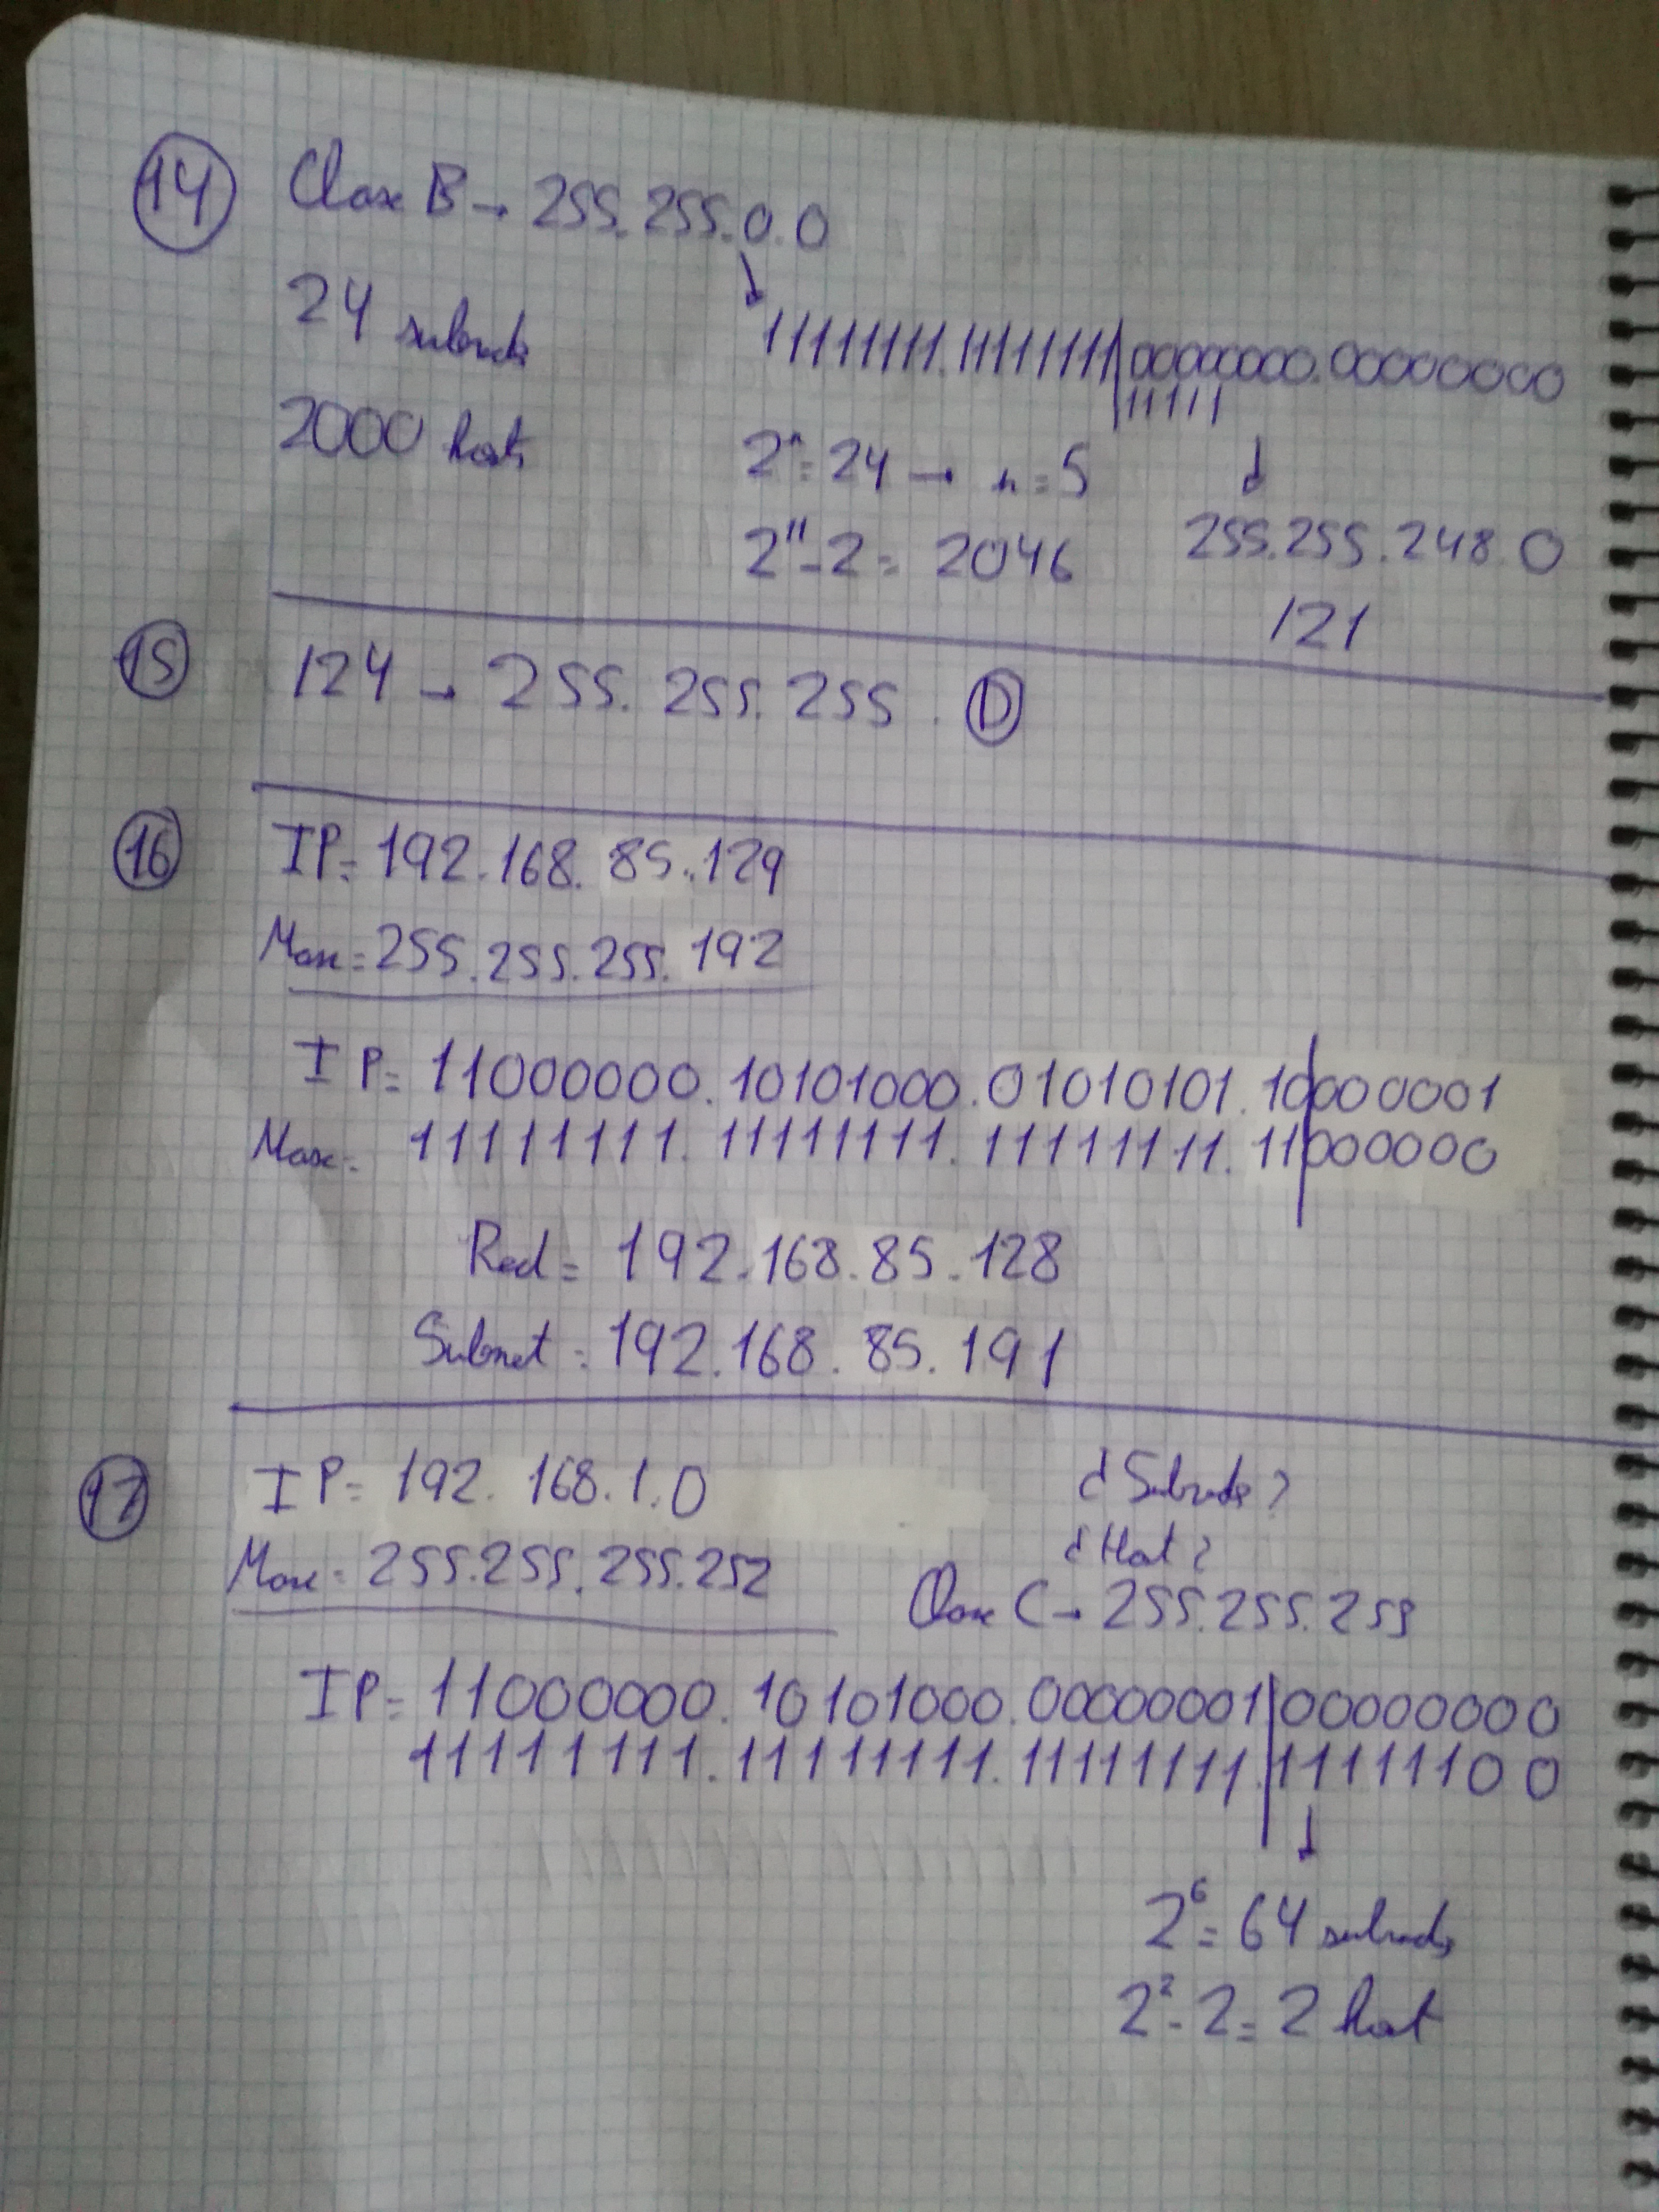 14 Clase B → 255.255.0.0
24 subredes
11111111.11111111|00000000.00000000
11111
2000 hosts
2ⁿ = 24 → n = 5
2¹¹ - 2 = 2046
255.255.248.0
/21
15 /24 → 255.255.255.0
16 IP = 192.168.85.129
Masc = 255.255.255.192
IP = 11000000.10101000.01010101.10|000001
Masc = 11111111.11111111.11111111.11|000000
Red = 192.168.85.128
Subnet = 192.168.85.191
17 IP = 192.168.1.0
¿Subredes?
¿Host?
Masc = 255.255.255.252
Clase C → 255.255.255
IP = 11000000.10101000.00000001|00000000
11111111.11111111.11111111.|11111100
2⁶ = 64 subredes
2² - 2 = 2 host